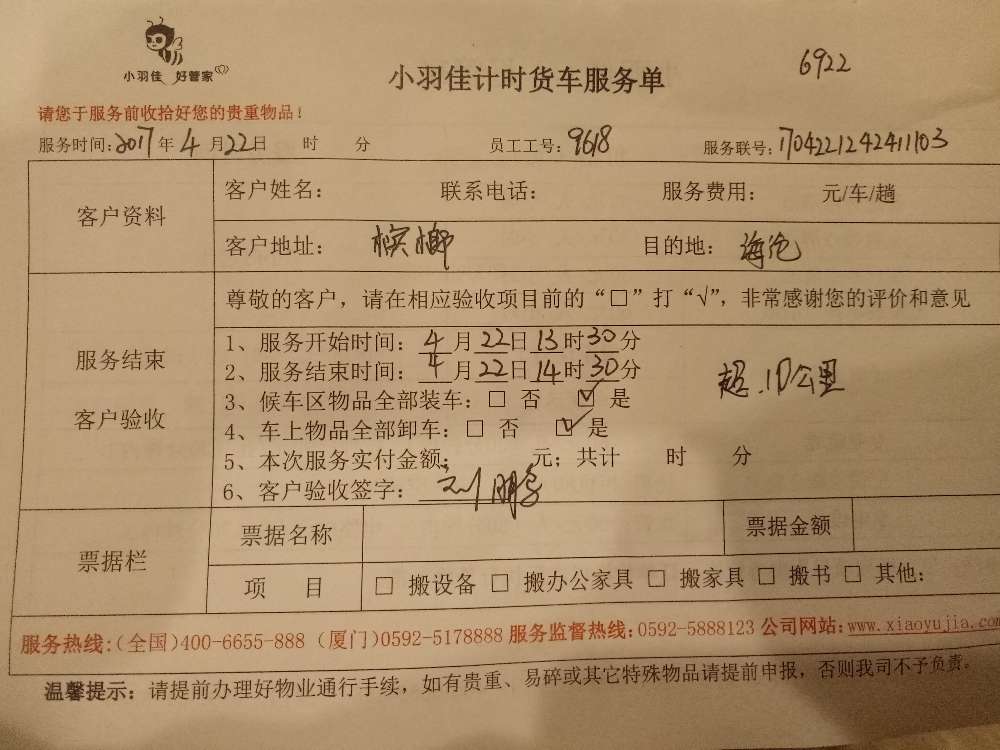 小羽佳 好管家
小羽佳计时货车服务单
6922
请您于服务前收拾好您的贵重物品！
服务时间：2017年4月22日 时 分 员工工号：9618 服务联号：1704221242411103
客户资料
客户姓名： 联系电话： 服务费用： 元/车/趟
客户地址： 槟榔 目的地： 海沧
服务结束
客户验收
尊敬的客户，请在相应验收项目前的“□”打“√”，非常感谢您的评价和意见
1、服务开始时间：4月22日13时30分
2、服务结束时间：4月22日14时30分
超.10公里
3、候车区物品全部装车：□ 否 ☑ 是
4、车上物品全部卸车：□ 否 ☑ 是
5、本次服务实付金额： 元；共计 时 分
6、客户验收签字：
票据栏
票据名称 票据金额
项 目 □ 搬设备 □ 搬办公家具 □ 搬家具 □ 搬书 □ 其他：
服务热线：（全国）400-6655-888 （厦门）0592-5178888 服务监督热线：0592-5888123 公司网站：www.xiaoyujia.com
温馨提示：请提前办理好物业通行手续，如有贵重、易碎或其它特殊物品请提前申报，否则我司不予负责。